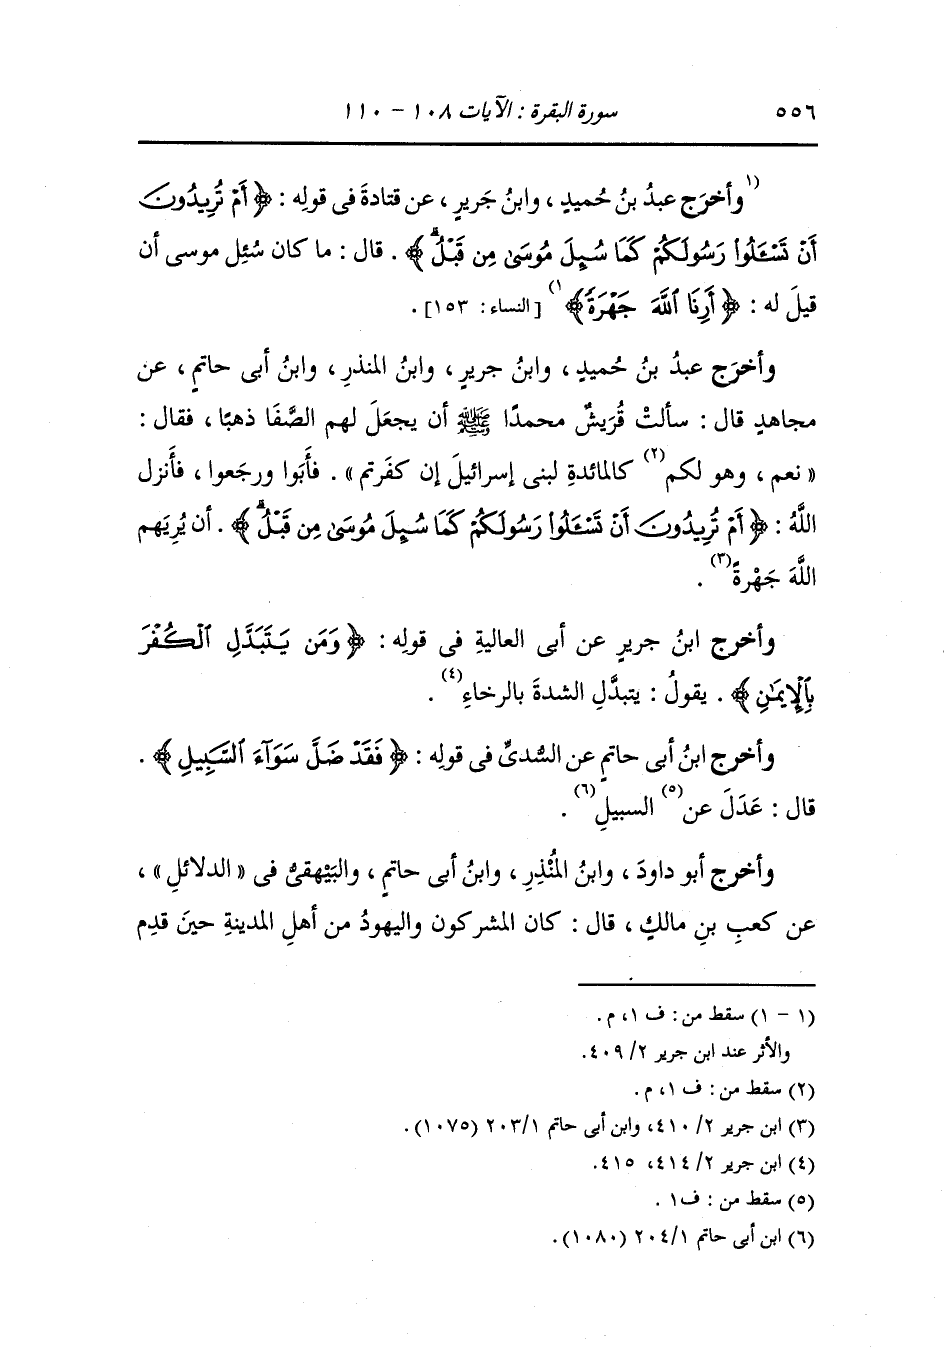 ٥٥٦ سورة البقرة : الآيات ١٠٨ - ١١٠
(١وأخرَج عبدُ بنُ حُميدٍ ، وابنُ جَريرٍ ، عن قتادةَ فى قولِه : ﴿ أَمْ تُرِيدُونَ
أَن تَسْـَٔلُوا۟ رَسُولَكُمْ كَمَا سُئِلَ مُوسَىٰ مِن قَبْلُ ۗ ﴾ . قال : ما كان سُئِل موسى أن
قيلَ له : ﴿ أَرِنَا ٱللَّهَ جَهْرَةً ﴾١) [النساء: ١٥٣] .
وأخرَج عبدُ بنُ حُميدٍ ، وابنُ جريرٍ ، وابنُ المنذرِ ، وابنُ أبى حاتمٍ ، عن
مجاهدٍ قال : سألتْ قُرَيشٌ محمدًا ﷺ أن يجعلَ لهم الصَّفَا ذهبًا ، فقال :
« نعم ، وهو لكم(٢) كالمائدةِ لبنى إسرائيلَ إن كفَرتم » . فأَبَوا ورجَعوا ، فأَنزل
اللَّهُ : ﴿ أَمْ تُرِيدُونَ أَن تَسْـَٔلُوا۟ رَسُولَكُمْ كَمَا سُئِلَ مُوسَىٰ مِن قَبْلُ ۗ ﴾ . أن يُرِيَهم
اللَّهَ جَهْرةً(٣) .
وأخرج ابنُ جريرٍ عن أبى العاليةِ فى قولِه : ﴿ وَمَن يَتَبَدَّلِ ٱلْكُفْرَ
بِٱلْإِيمَٰنِ ﴾ . يقولُ : يتبدَّلِ الشدةَ بالرخاءِ(٤) .
وأخرج ابنُ أبى حاتمٍ عن السُّدىِّ فى قولِه : ﴿ فَقَدْ ضَلَّ سَوَآءَ ٱلسَّبِيلِ ﴾ .
قال : عَدَلَ عن(٥) السبيلِ(٦) .
وأخرج أبو داودَ ، وابنُ المُنْذِرِ ، وابنُ أبى حاتمٍ ، والبَيْهقىُّ فى « الدلائلِ » ،
عن كعبِ بنِ مالكٍ ، قال : كان المشركون واليهودُ من أهلِ المدينةِ حينَ قدِم
(١ - ١) سقط من : ف ١، م .
والأثر عند ابن جرير ٢/ ٤٠٩.
(٢) سقط من : ف ١، م .
(٣) ابن جرير ٢/ ٤١٠، وابن أبى حاتم ٢٠٣/١ (١٠٧٥) .
(٤) ابن جرير ٢/ ٤١٤، ٤١٥.
(٥) سقط من : ف١ .
(٦) ابن أبى حاتم ٢٠٤/١ (١٠٨٠) .